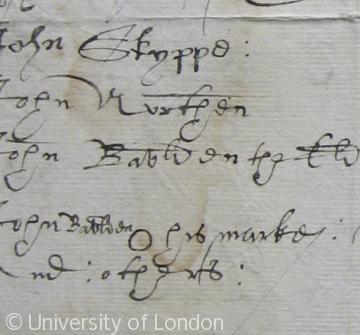 John Skyppe :
John Nurthen
John Babbden the Eld
John Babbden O his marke :
And : others :
© University of London